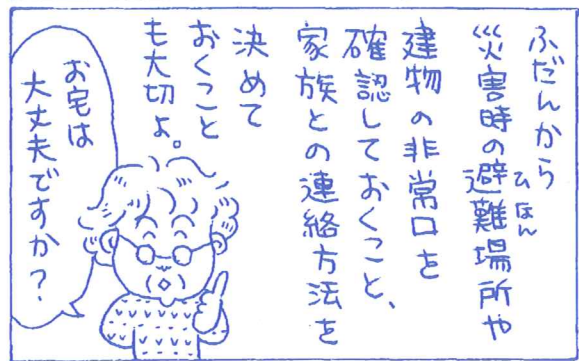 ふだんから
災害時の避難場所や
ひなん
建物の非常口を
確認しておくこと、
家族との連絡方法を
決めて
おくこと
も大切よ。
お宅は
大丈夫ですか？